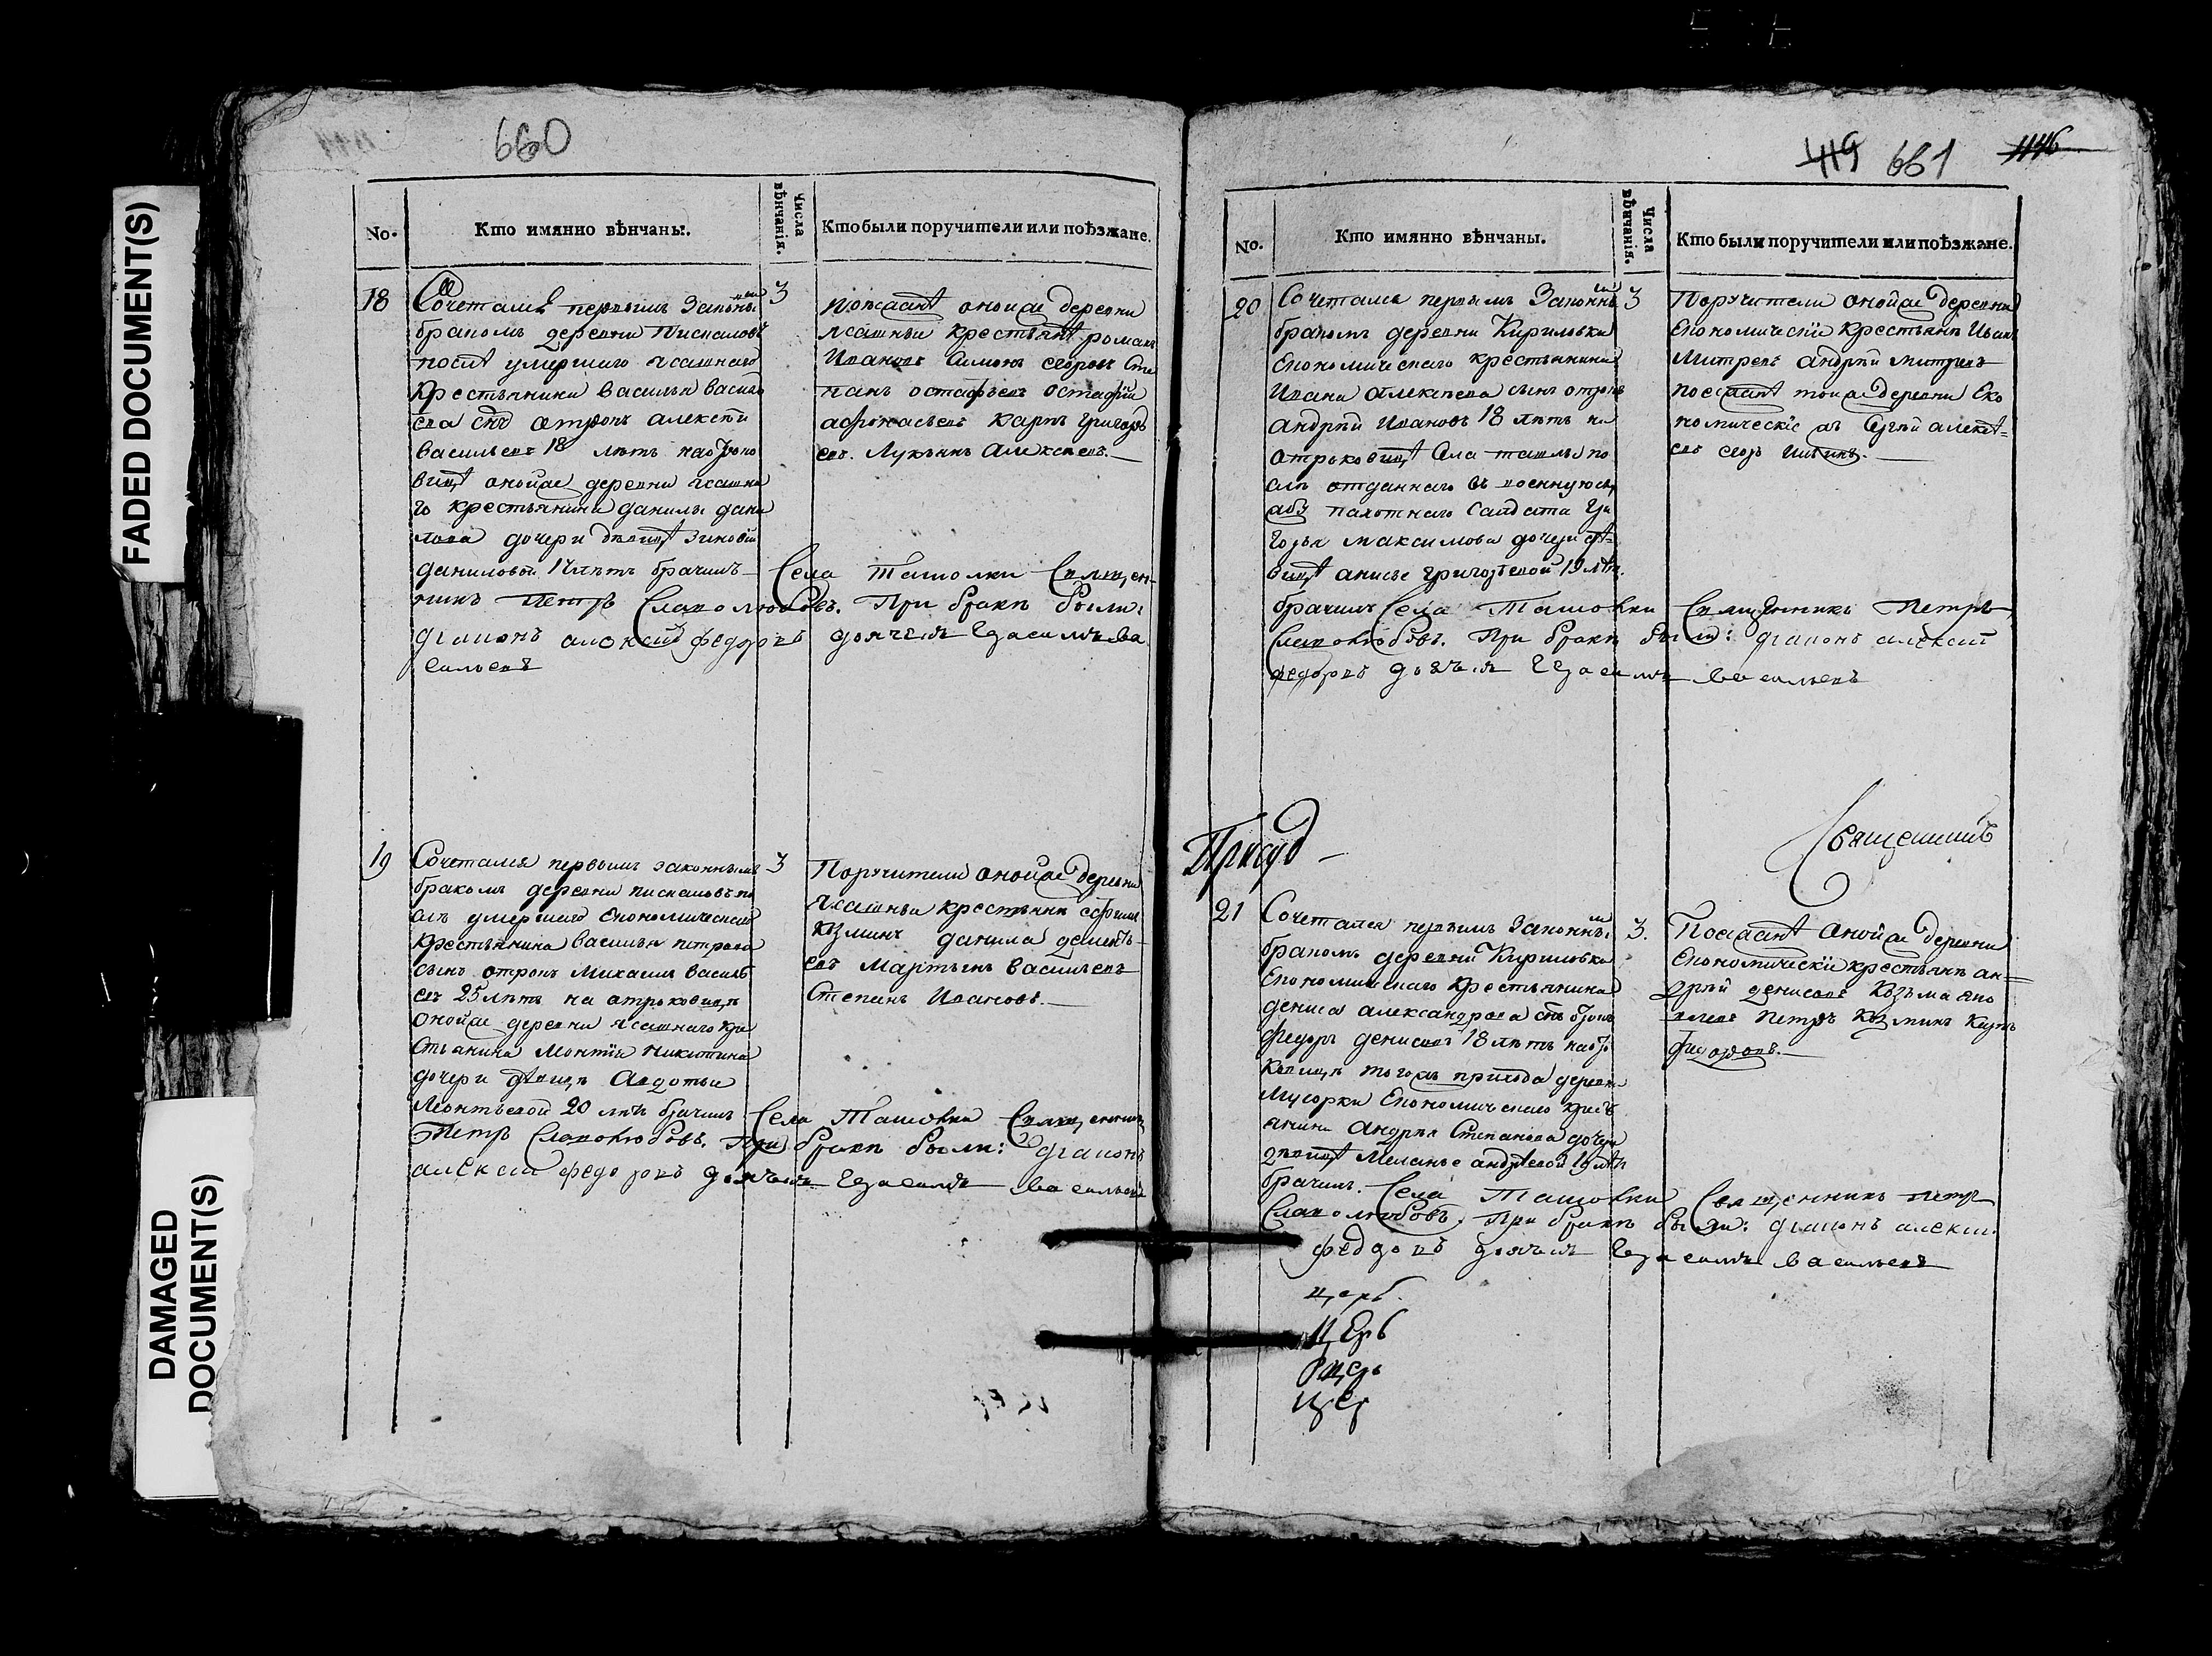 FADED DOCUMENT(S)
DAMAGED
DOCUMENT(S)
660
No.
Кто имянно вѣнчаны.
Числа
вѣнчанія.
Кто были поручители или поѣзжане.
18
Сочетался первымъ законнымъ
бракомъ деревни Пискаловъ
послѣ умершаго ясашнаго
крестьянина Василья Василь
ева снъ отрокъ алексѣй
васильевъ 18 лѣтъ на отроко
вицѣ онойже деревни ясашна
го крестьянина данилы дани
лова дочери девицѣ Зиновіи
даниловой лѣтъ брачилъ
Села Ташолки Священ-
никъ Петръ Славолюбовъ. При бракѣ были:
діаконъ алексій федоровъ дьячекъ Герасимъ Ва
сильевъ
3
поѣзжанѣ онойже деревни
ясашныи крестьянѣ романъ
Ивановъ Сте
панъ остафьевъ остафій
афонасьевъ карпъ григорь
евъ. Лукьянъ Алексѣевъ.
19
Сочетался первымъ законнымъ
бракомъ деревни пискаловъ по
слѣ умершаго Економическаго
крестьянина василья петрова
сынъ отрокъ Михаила василь
евъ 25 лѣтъ на отроковицѣ
онойже деревни ясашнаго кре
стьянина Монтія никитина
дочери дѣвицѣ Авдотьи
Монтьевой 20 лѣтъ брачилъ
Села Ташовки Священникъ
Петръ Славолюбовъ. При бракѣ были: діаконъ
алексій федоровъ дьячекъ Герасимъ Васильевъ
3
Поручители онойже деревни
ясашныи крестьянѣ ефимъ
козминъ данила дементь-
евъ Мартынъ васильевъ
Степанъ Ивановъ.
419 661 1146
No.
Кто имянно вѣнчаны.
Числа
вѣнчанія.
Кто были поручители или поѣзжане.
20
Сочетался первымъ Законнымъ
бракомъ деревни Кириловки
Економическаго крестьянина
Ивана Алексѣева сынъ отрокъ
андрѣй Ивановъ 18 лѣтъ на
отроковицѣ Села ташлы по
слѣ отданнаго въ военную слу
жбу пахотнаго Салдата Гри
горья максимова дочери дѣ-
вицѣ анисье григорьевой 19 лѣтъ.
брачилъ Села Ташовки Священникъ Петръ
Славолюбовъ. При бракѣ были: діаконъ алексій
федоровъ дьячекъ Герасимъ Васильевъ
3
Поручители онойже деревни
Економическіе крестьянѣ Иванъ
Митревъ андрѣй митревъ
поезжанѣ тойже деревни Еко
номическіе жъ Сергѣй алексѣ-
евъ егоръ Ильинъ.
Священникъ
21
Сочетался первымъ Законнымъ
бракомъ деревни Кириловки
Економическаго крестьянина
дениса александрова снъ отрокъ
федоръ денисовъ 18 лѣтъ на отро
ковицѣ тогожъ прихода деревни
Мусорки Економическаго кресть
янина Андрея Степанова дочери
девицѣ Меланье андрѣевой 19 лѣтъ
брачилъ. Села Ташовки Священникъ Петръ
Славолюбовъ. При бракѣ были: діаконъ алексій
федоровъ дьячекъ Герасимъ васильевъ
3.
Поезжанѣ Онойже деревни
Економическіе крестьянѣ ан-
дрѣй денисовъ Козьма яко
влевъ Петръ Козминъ
федоровъ.
церб.
Церб
Цер